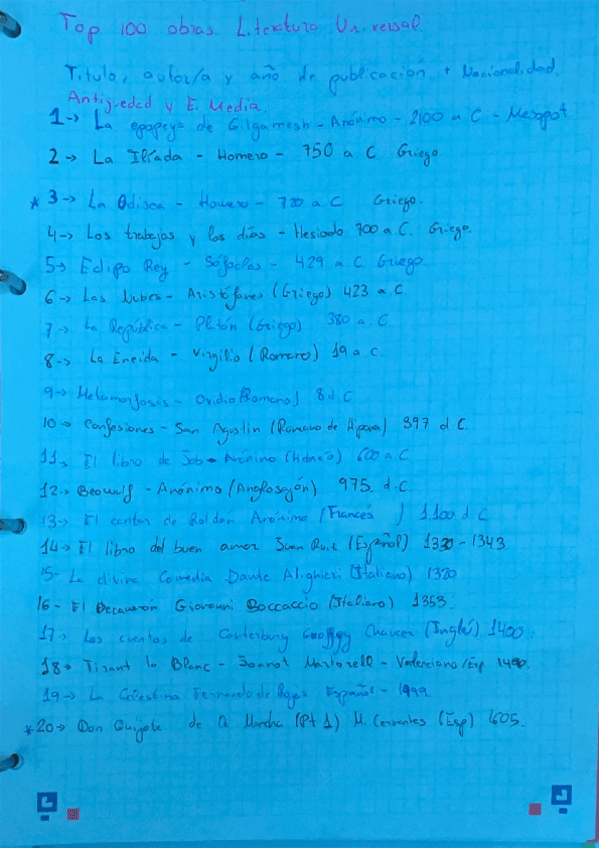 Top 100 obras Literatura Universal
Titulo, autor/a y año de publicación + Nacionalidad
Antiguedad y E. Media
1-> La epopeya de Gilgamesh - Anónimo - 2100 a C - Mesopot
2 -> La Ilíada - Homero - 750 a C Griego
* 3 -> La Odisea - Homero - 720 a C Griego.
4-> Los trabajos y los días - Hesiodo 700 a C. Griego.
5-> Edipo Rey - Sófocles - 429 a C Griego
6 -> Las Nubes - Aristófanes (Griego) 423 a.C.
7 -> La República - Platón (Griego) 380 a.C
8-> La Eneida - Virgilio (Romano) 19 a c
9-> Metamorfosis - Ovidio (Romano) 8 d C
10 -> Confesiones - San Agustin (Romano de Hipona) 397 d C.
11-> El libro de Job - Anónimo (hebreo) 600 a.C
12-> Beowulf - Anónimo (Anglosajón) 975. d.C
13-> El cantar de Roldán Anónimo (Francés ) 1.100 d.C
14-> El libro del buen amor Juan Ruiz (Español) 1330 - 1343
15- La divina Comedia Dante Alighieri (Italiano) 1320
16- El Decamerón Giovanni Boccaccio (Italiano) 1353.
17-> Los cuentos de Canterbury Geoffrey Chaucer (Inglés) 1400
18-> Tirant lo Blanc - Joanot Martorell - Valenciano/Esp 1490.
19-> La Celestina Fernando de Rojas Español - 1499
*20-> Don Quijote de la Mancha (Pt 1) M. Cervantes (Esp) 1605.